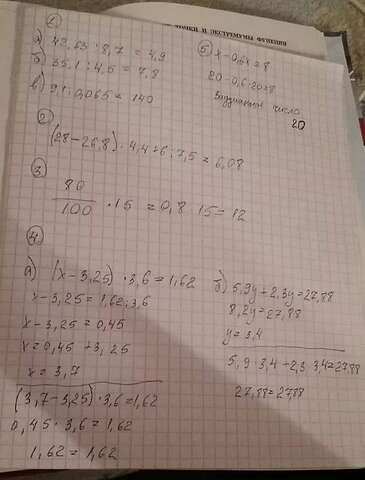 1
а) 42,63 : 8,7 = 4,9
б) 35,1 : 4,5 = 7,8
в) 9,1 : 0,065 = 140
2
(28-26,8) · 4,4+6 : 7,5 = 6,08
3
80/100 · 15 = 0,8 · 15 = 12
4
а) (х-3,25) · 3,6 = 1,62
х-3,25 = 1,62 : 3,6
х-3,25 = 0,45
х = 0,45 + 3,25
х = 3,7
(3,7-3,25) · 3,6 = 1,62
0,45 · 3,6 = 1,62
1,62 = 1,62
б) 5,9у + 2,3у = 27,88
8,2у = 27,88
у = 3,4
5,9 · 3,4 + 2,3 · 3,4 = 27,88
27,88 = 27,88
5 х - 0,6х = 8
20 - 0,6 · 20 = 8
число
20